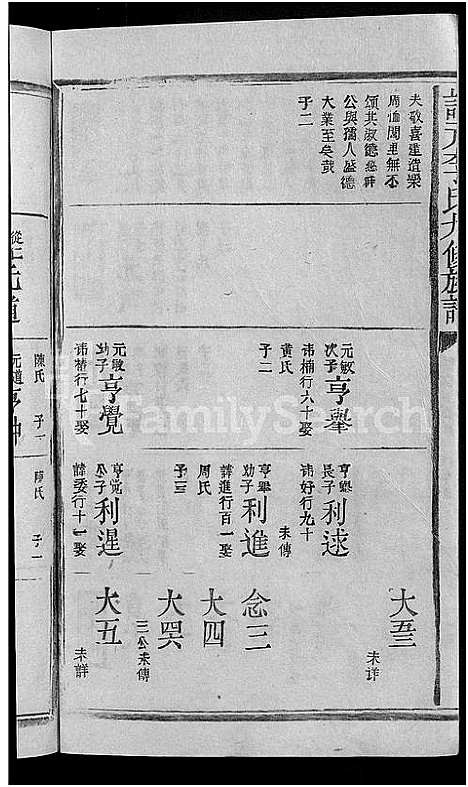 李氏九修族譜
夫敬喜建造樂
周恤閭里無不
頌其淑德
公與孺人盛德
大業至矣哉
子二
元敏
次子 亨舉
諱楠行六十娶
黄氏
子二
元敏
幼子 亨覺
諱椿行七十娶
亨舉
長子 利逑
諱好行九十
未傳
亨舉
幼子 利進
諱進行百一娶
周氏
子三
亨覚
長子 利暹
諱委行十一娶
陳氏 子一
大吾三
未详
念三
大四
大四
三公未傳
大五
未詳
從
元道
元道
亨
陳氏 子一
FamilySearch